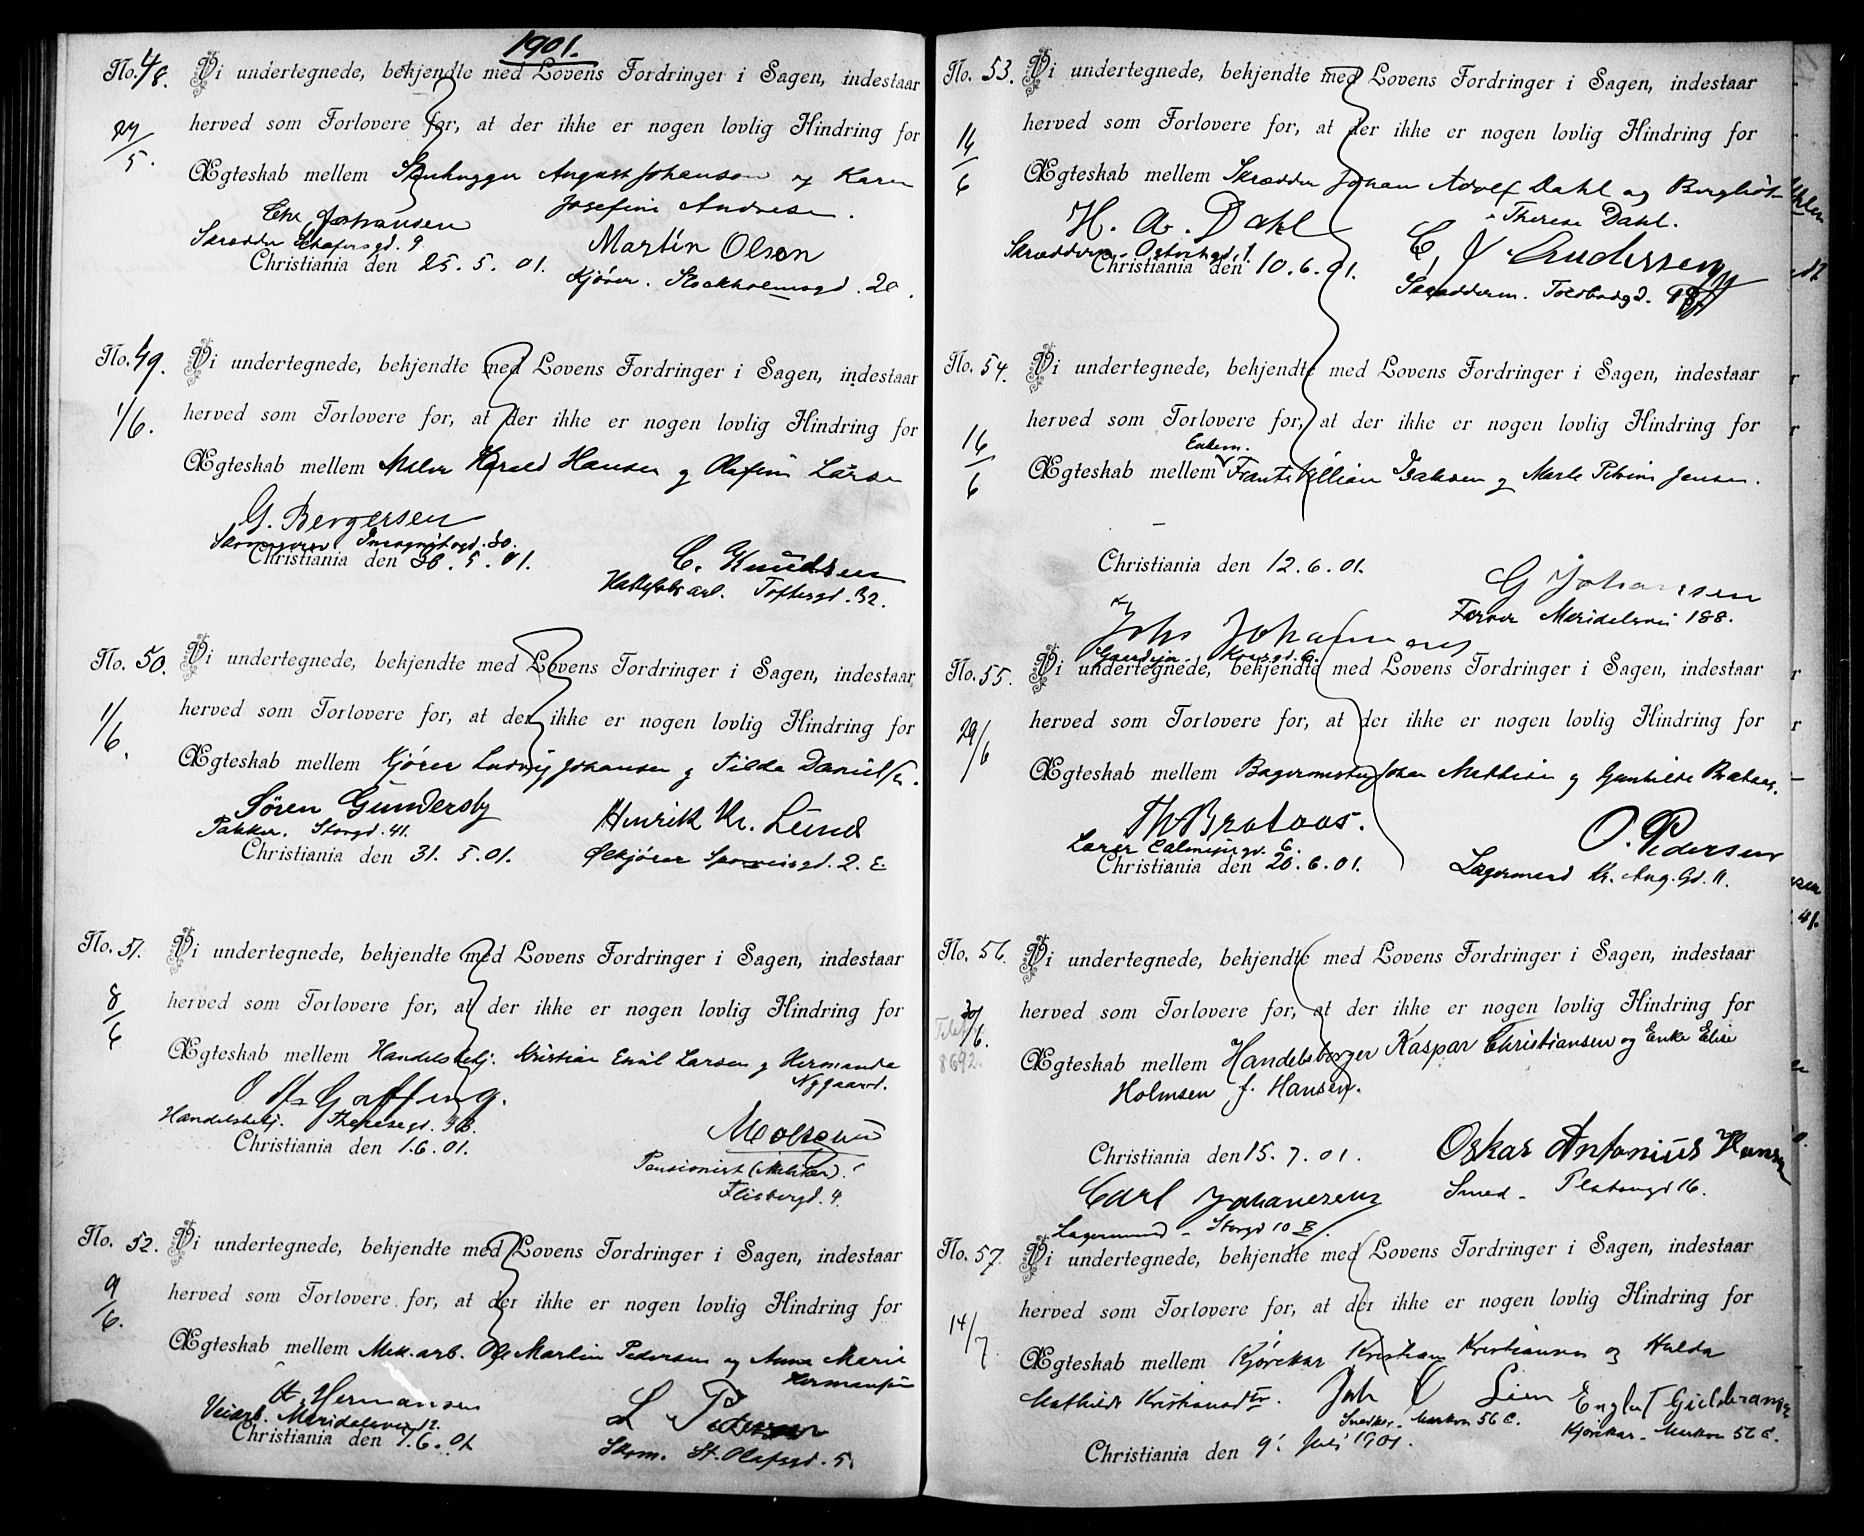 1901.
No. 48. Vi undertegnede, bekjendte med Lovens Fordringer i Sagen, indestaar
27/5. herved som Forlovere for, at der ikke er nogen lovlig Hindring for
Ægteskab mellem Stenhugger August Johansen og Karen
Josefine Andresen.
Chr. Johansen
Skrædder 9
Martin Olsen
Christiania den 25.5.01.
Kjører. Stockholmsgd. 20.
No. 49. Vi undertegnede, bekjendte med Lovens Fordringer i Sagen, indestaar
1/6. herved som Forlovere for, at der ikke er nogen lovlig Hindring for
Ægteskab mellem Maler Harald Hansen og Olefine Larsen
G. Bergersen
Incognitogd. 30.
Christiania den 30.5.01.
C. Knudsen
Toftesgd. 32.
No. 50. Vi undertegnede, bekjendte med Lovens Fordringer i Sagen, indestaar
1/6. herved som Forlovere for, at der ikke er nogen lovlig Hindring for
Ægteskab mellem Kjører Ludvig Johansen og Tilda Danielsen.
Sören Gundersby
Pakker. Storgd. 41.
Henrik Kr. Lund
Christiania den 31.5.01.
Ølkjører 2. E
No. 51. Vi undertegnede, bekjendte med Lovens Fordringer i Sagen, indestaar
8/6 herved som Forlovere for, at der ikke er nogen lovlig Hindring for
Ægteskab mellem Handelsbetj. Kristian Emil Larsen og Hermanda
Nygaard.
Handelsbetj. Theresegd.
Christiania den 1.6.01.
Pensionist (Militær).
4.
No. 52. Vi undertegnede, bekjendte med Lovens Fordringer i Sagen, indestaar
9/6. herved som Forlovere for, at der ikke er nogen lovlig Hindring for
Ægteskab mellem Mek. arb. Ole Martin Pedersen og Anna Marie
Hermansen
A. Hermansen
Veiarb. Maridalsvei 12.
L Pedersen
Christiania den 7.6.01
Skom. St. Olafsgd. 5.
No. 53. Vi undertegnede, bekjendte med Lovens Fordringer i Sagen, indestaar
14/6 herved som Forlovere for, at der ikke er nogen lovlig Hindring for
Ægteskab mellem Skrædder Johan Adolf Dahl og Bergliot
Therese Dahl.
H. A. Dahl
C. J. Andersen
Skrædderm.
Christiania den 10.6.01.
Skrædderm. Toldbodgd.
No. 54. Vi undertegnede, bekjendte med Lovens Fordringer i Sagen, indestaar
herved som Forlovere for, at der ikke er nogen lovlig Hindring for
Enkem.
16/6 Ægteskab mellem Frants Villian Isaksen og Marte Petrine Jensen.
Christiania den 12.6.01.
G Johansen
Farver Maridalsvei 188.
Johs Johannesen
No. 55. Vi undertegnede, bekjendte med Lovens Fordringer i Sagen, indestaar
29/6 herved som Forlovere for, at der ikke er nogen lovlig Hindring for
Ægteskab mellem Bagermester Johan Mathisen og Gunhilde Brataas.
Th Brataas.
O. Pedersen
Lærer 6.
Christiania den 20.6.01.
Lagermand Kr. Aug. Gd. 11.
No. 56. Vi undertegnede, bekjendte med Lovens Fordringer i Sagen, indestaar
30/6. herved som Forlovere for, at der ikke er nogen lovlig Hindring for
8692.
Ægteskab mellem Handelsborger Kaspar Christiansen og Enke Elise
Holmsen f. Hansen.
Christiania den 15.7.01.
Oskar Antonius Hansen
Smed - Platougd 16.
Carl Johanesen
Lagermand - Storgd 10 B.
No. 57. Vi undertegnede, bekjendte med Lovens Fordringer i Sagen, indestaar
14/7 herved som Forlovere for, at der ikke er nogen lovlig Hindring for
Ægteskab mellem Kjørekar Kristian Kristiansen og Hulda
Mathilde Kristiansdtr. Joh O Lien
Snedker. Markvn 56 C.
Kjørekar - Markvn 56 C.
Christiania den 9. Juli 1901.